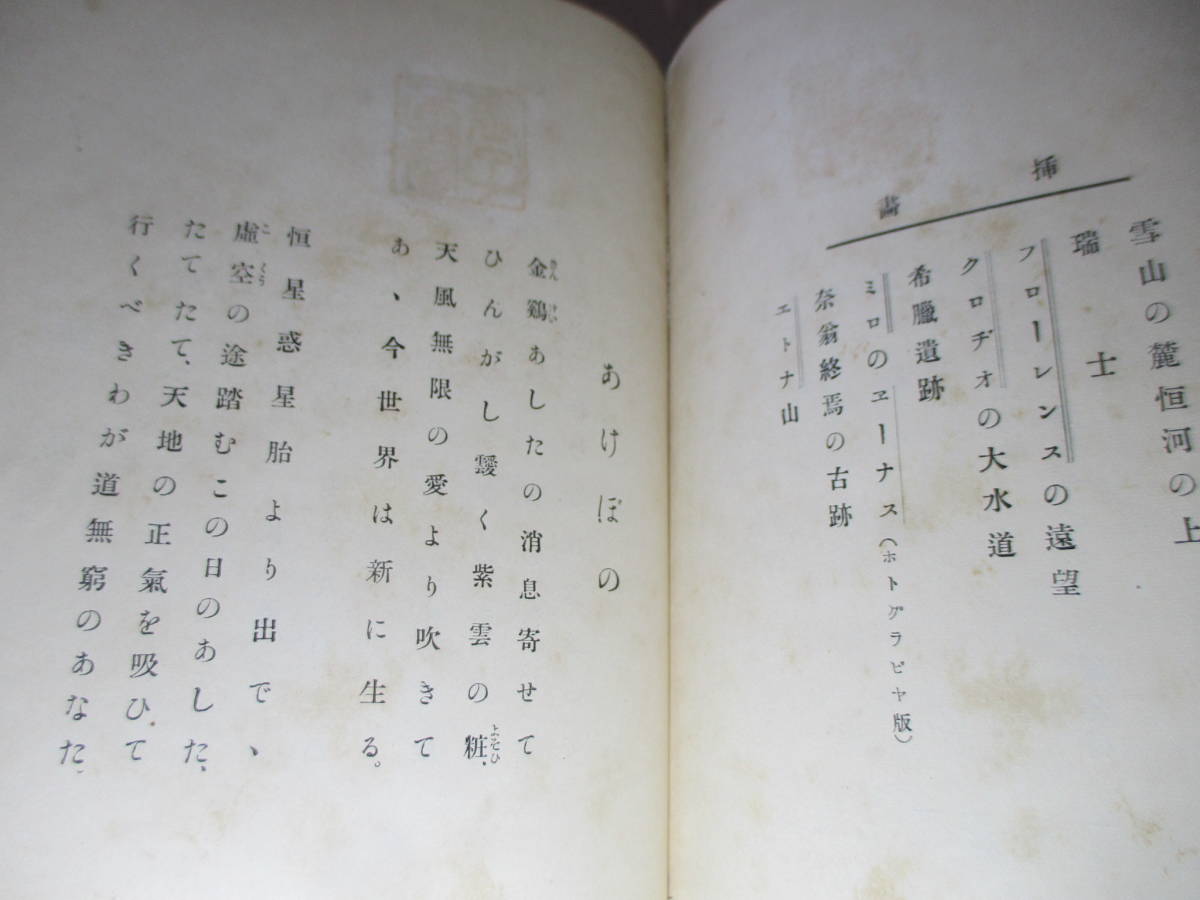 挿畵
雪山の麓恒河の上
瑞士
フローレンスの遠望
クロヂオの大水道
希臘遺跡
ミロのヱーナス（ホトグラビヤ版）
奈翁終焉の古跡
エトナ山
あけぼの
金鷄あしたの消息寄せて
ひんがし靉く紫雲の粧、
天風無限の愛より吹きて
あゝ今世界は新に生る。
恒星惑星胎より出でゝ
虚空の途踏むこの日のあした、
たてたて、天地の正氣を吸ひて
行くべきわが道無窮のあなた、